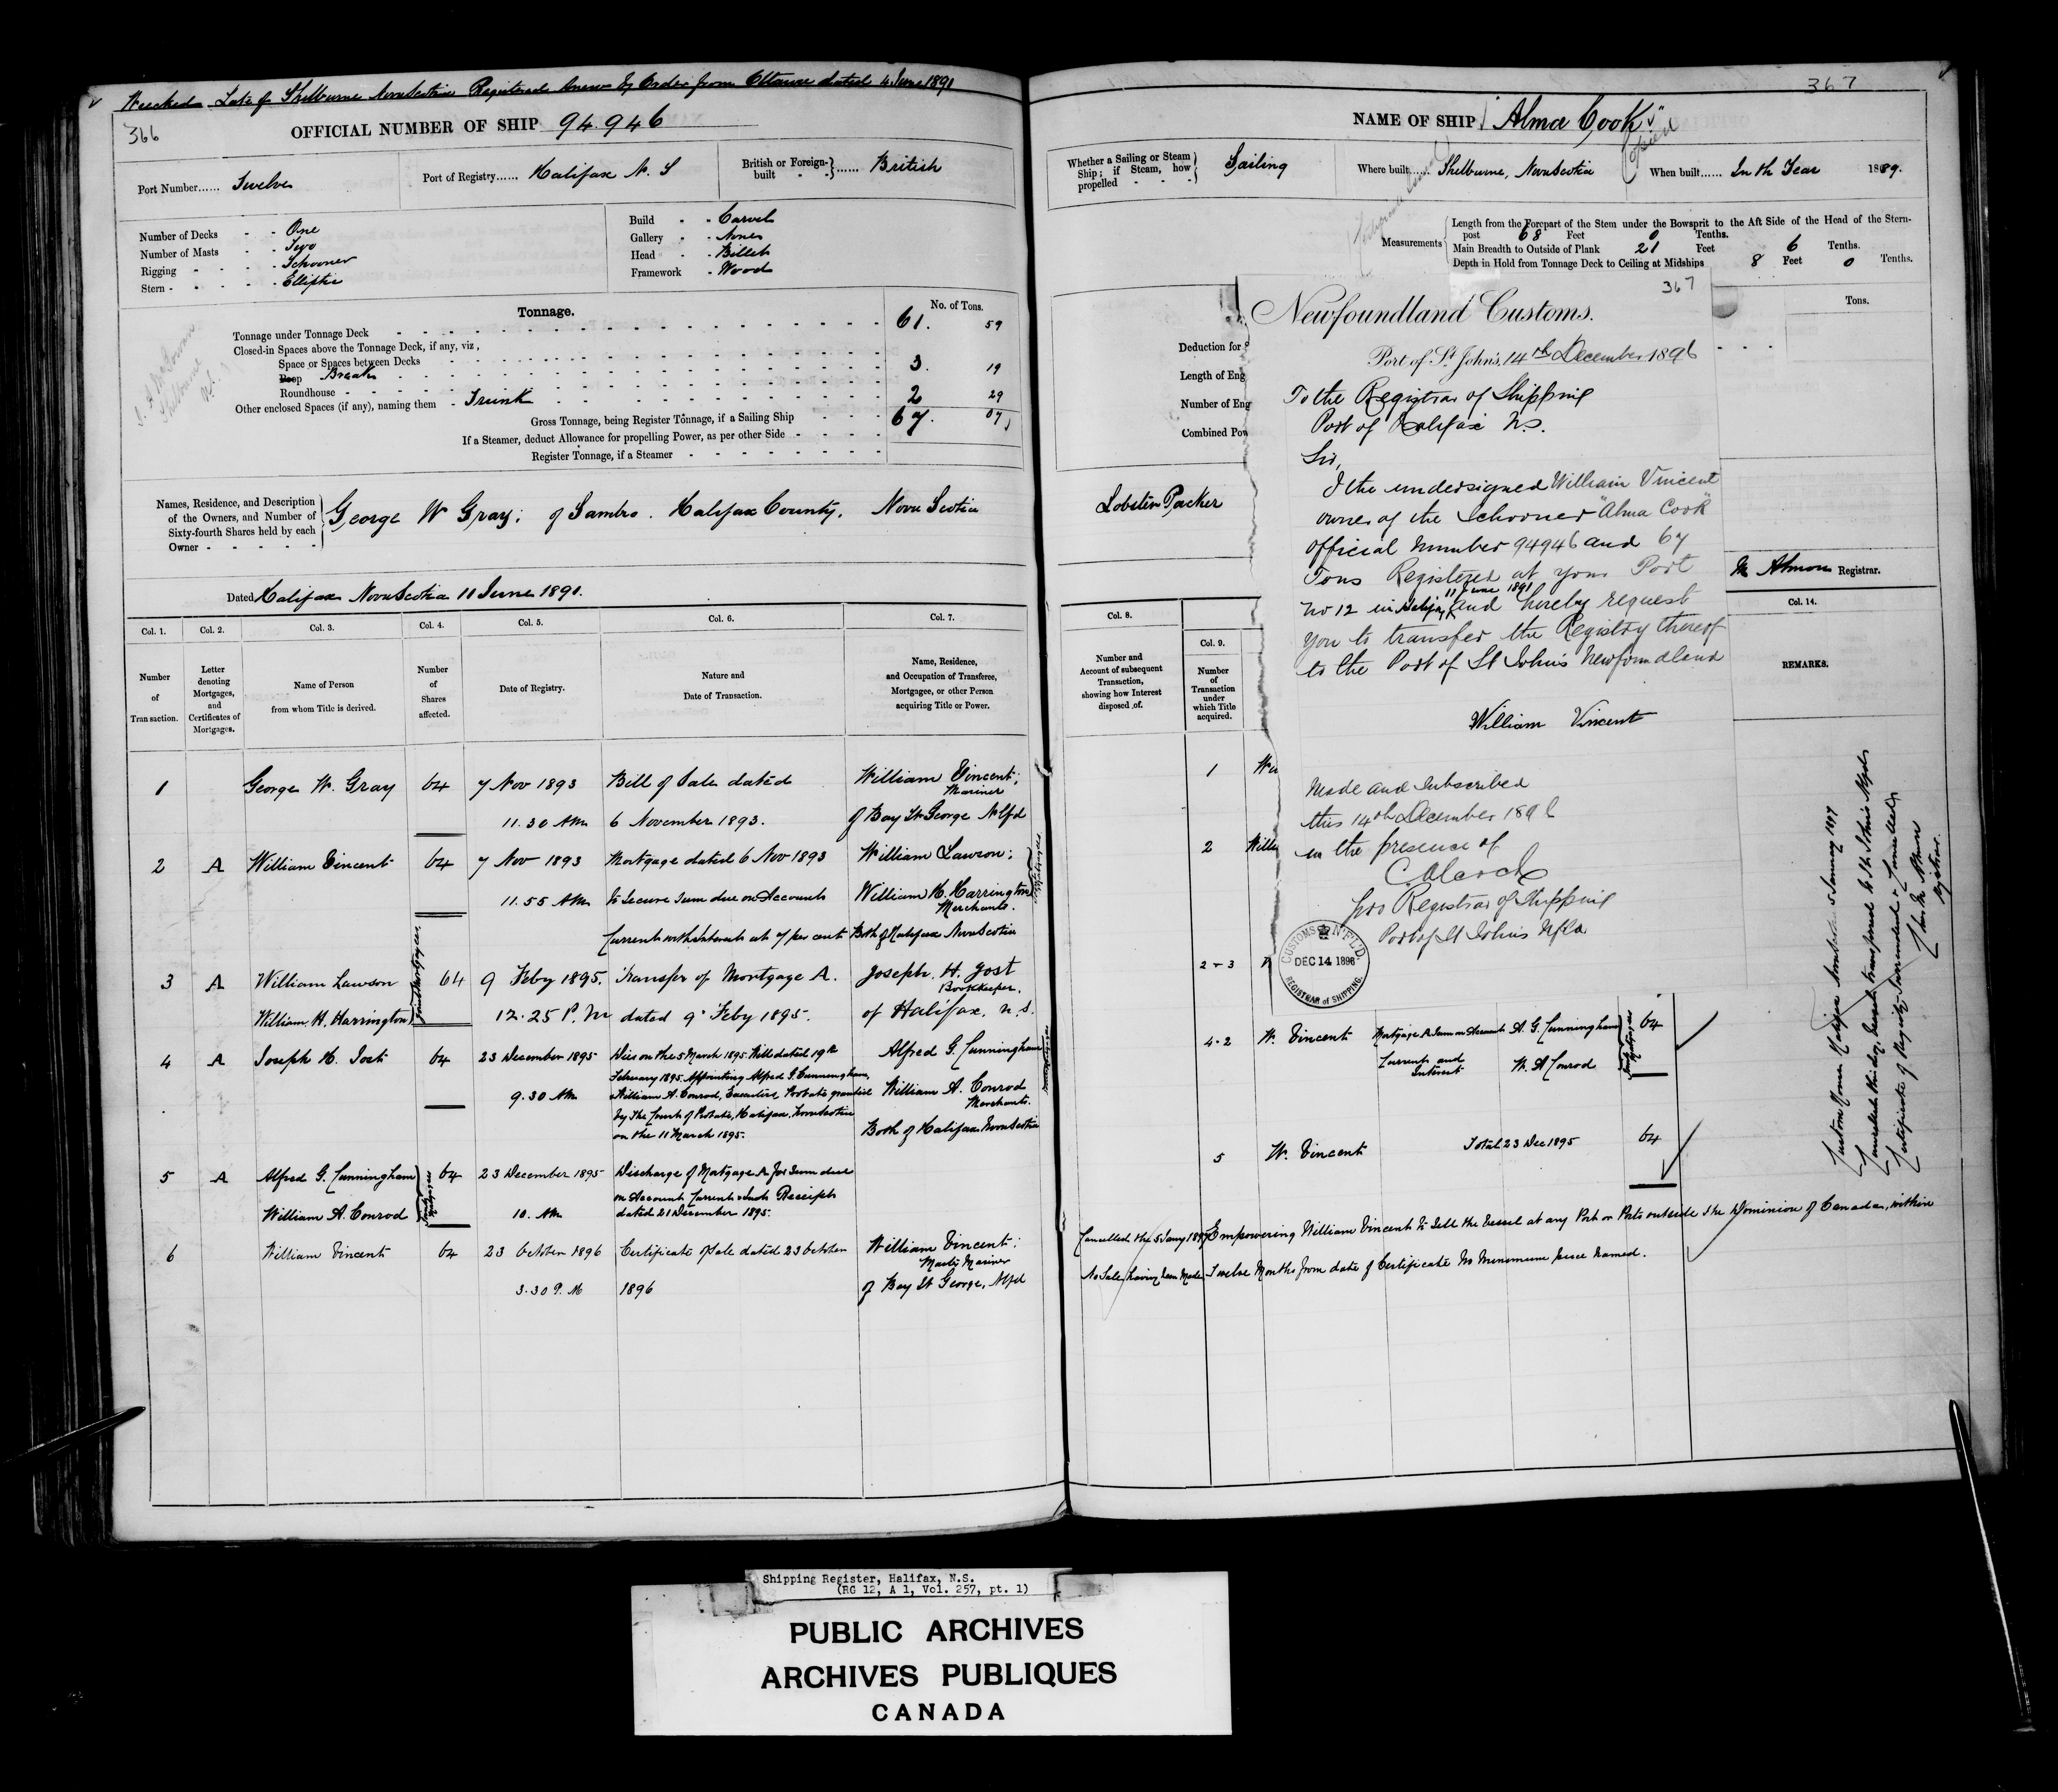 Wrecked Late of Shelburne Nova Scotia Registered Anew by Order from Ottawa dated 4 June 1891
366
OFFICIAL NUMBER OF SHIP 94.946
Port Number...... Twelve
Port of Registry...... Halifax N. S
British or Foreign-built - - }...... British
Number of Decks - - One
Number of Masts - - Two
Rigging - - - - Schooner
Stern - - - - - Elliptic
Build - - Carvel
Gallery - - None
Head - - Billet
Framework - Wood
Tonnage.
No. of Tons.
Tonnage under Tonnage Deck 61. 59
Closed-in Spaces above the Tonnage Deck, if any, viz,
Space or Spaces between Decks
Poop Break 3. 19
Roundhouse
Other enclosed Spaces (if any), naming them - Trunk 2 29
Gross Tonnage, being Register Tonnage, if a Sailing Ship 67. 07
If a Steamer, deduct Allowance for propelling Power, as per other Side
Register Tonnage, if a Steamer
Names, Residence, and Description
of the Owners, and Number of
Sixty-fourth Shares held by each
Owner - - - - -
George W Gray; of Sambro. Halifax County, Nova Scotia
Dated Halifax Nova Scotia 11 June 1891.
Col. 1. Col. 2. Col. 3. Col. 4. Col. 5. Col. 6. Col. 7.
Number of Transaction.
Letter denoting Mortgages, and Certificates of Mortgages.
Name of Person from whom Title is derived.
Number of Shares affected.
Date of Registry.
Nature and Date of Transaction.
Name, Residence, and Occupation of Transferee, Mortgagee, or other Person acquiring Title or Power.
1 George W. Gray 64 7 Nov 1893 Bill of Sale dated William Vincent;
Mariner
11.30 AM 6 November 1893. of Bay St George Nfld
2 A William Vincent 64 7 Nov 1893 Mortgage dated 6 Nov 1893 William Lawson;
11.55 AM to secure sum due on Account William H. Harrington
Merchants.
Current with Interest at 7 per cent Both of Halifax Nova Scotia
Joint Mortgagees
3 A William Lawson 64 9 Feby 1895. Transfer of Mortgage A. Joseph. H. Jost
Bookkeeper.
William. H. Harrington 12.25 P.M dated 9 Feby 1895. of Halifax. N. S.
Joint Mortgagees
4 A Joseph H. Jost 64 23 December 1895 Died on the 5 March 1895 Will dated 19th Alfred G. Cunningham
February 1895 Appointing Alfred G. Cunningham,
9.30 AM William A. Conrod, Executors Probate granted William A. Conrod
Merchants.
by the Court of Probate, Halifax, Nova Scotia
on the 11 March 1895. Both of Halifax Nova Scotia
5 A Alfred G. Cunningham 64 23 December 1895 Discharge of Mortgage A for Sum due
on Account Current & Int Receipt
William A. Conrod 10. AM dated 21 December 1895.
6 William Vincent 64 23 October 1896 Certificate of Sale dated 23 October William Vincent;
Master Mariner
3.30 P. M 1896 of Bay St George, Nfld
367
NAME OF SHIP "Alma Cook"
Closed
Whether a Sailing or Steam Ship; if Steam, how propelled - - - } Sailing
Where built...... Shelburne, Nova Scotia
When built...... In the Year 1889.
Measurements
Length from the Forepart of the Stem under the Bowsprit to the Aft Side of the Head of the Stern-
post 68 Feet 0 Tenths.
Main Breadth to Outside of Plank 21 Feet 6 Tenths.
Depth in Hold from Tonnage Deck to Ceiling at Midships 8 Feet 0 Tenths.
Tons.
Deduction for
Length of Eng
Number of Eng
Combined Pow
Lobster Packer
M Almon Registrar.
Col. 8. Col. 9. Col. 14.
Number and Account of subsequent Transaction, showing how Interest disposed of.
Number of Transaction under which Title acquired.
REMARKS.
367
Newfoundland Customs.
Port of St John's, 14th December 1896
To the Registrar of Shipping
Port of Halifax N.S.
Sir,
I the undersigned William Vincent
owner of the Schooner "Alma Cook"
official number 94946 and 67
Tons Registered at your Port
No 12 in Halifax 11 June 1891 and hereby request
you to transfer the Registry thereof
to the Port of St John's Newfoundland
William Vincent
Made and Subscribed
this 14th December 1896
in the presence of
pro Registrar of Shipping
Port of St Johns Nfld
CUSTOMS N'F'L'D.
DEC 14 1896
REGISTRAR of SHIPPING.
1
2 Will
2-3
4-2 W. Vincent Mortgage A Sum on Account A. G. Cunningham 64
Current and Interest W. A Conrod
Joint Mortgagees
5 W. Vincent Total 23 Dec 1895 64
Cancelled the 5 Jany 1897 Empowering William Vincent to Sell the Vessel at any Port or Ports outside the Dominion of Canada, within
No Sale having been Made Twelve Months from date of Certificate No Minimum price named.
Custom House Halifax Nova Scotia 5 January 1897
Cancelled this day, Vessel transferred to St. Johns Nfld
Certificate of Registry Surrendered & Cancelled
Registrar.
Shipping Register, Halifax, N.S.
(RG 12, A 1, Vol. 257, pt. 1)
PUBLIC ARCHIVES
ARCHIVES PUBLIQUES
CANADA